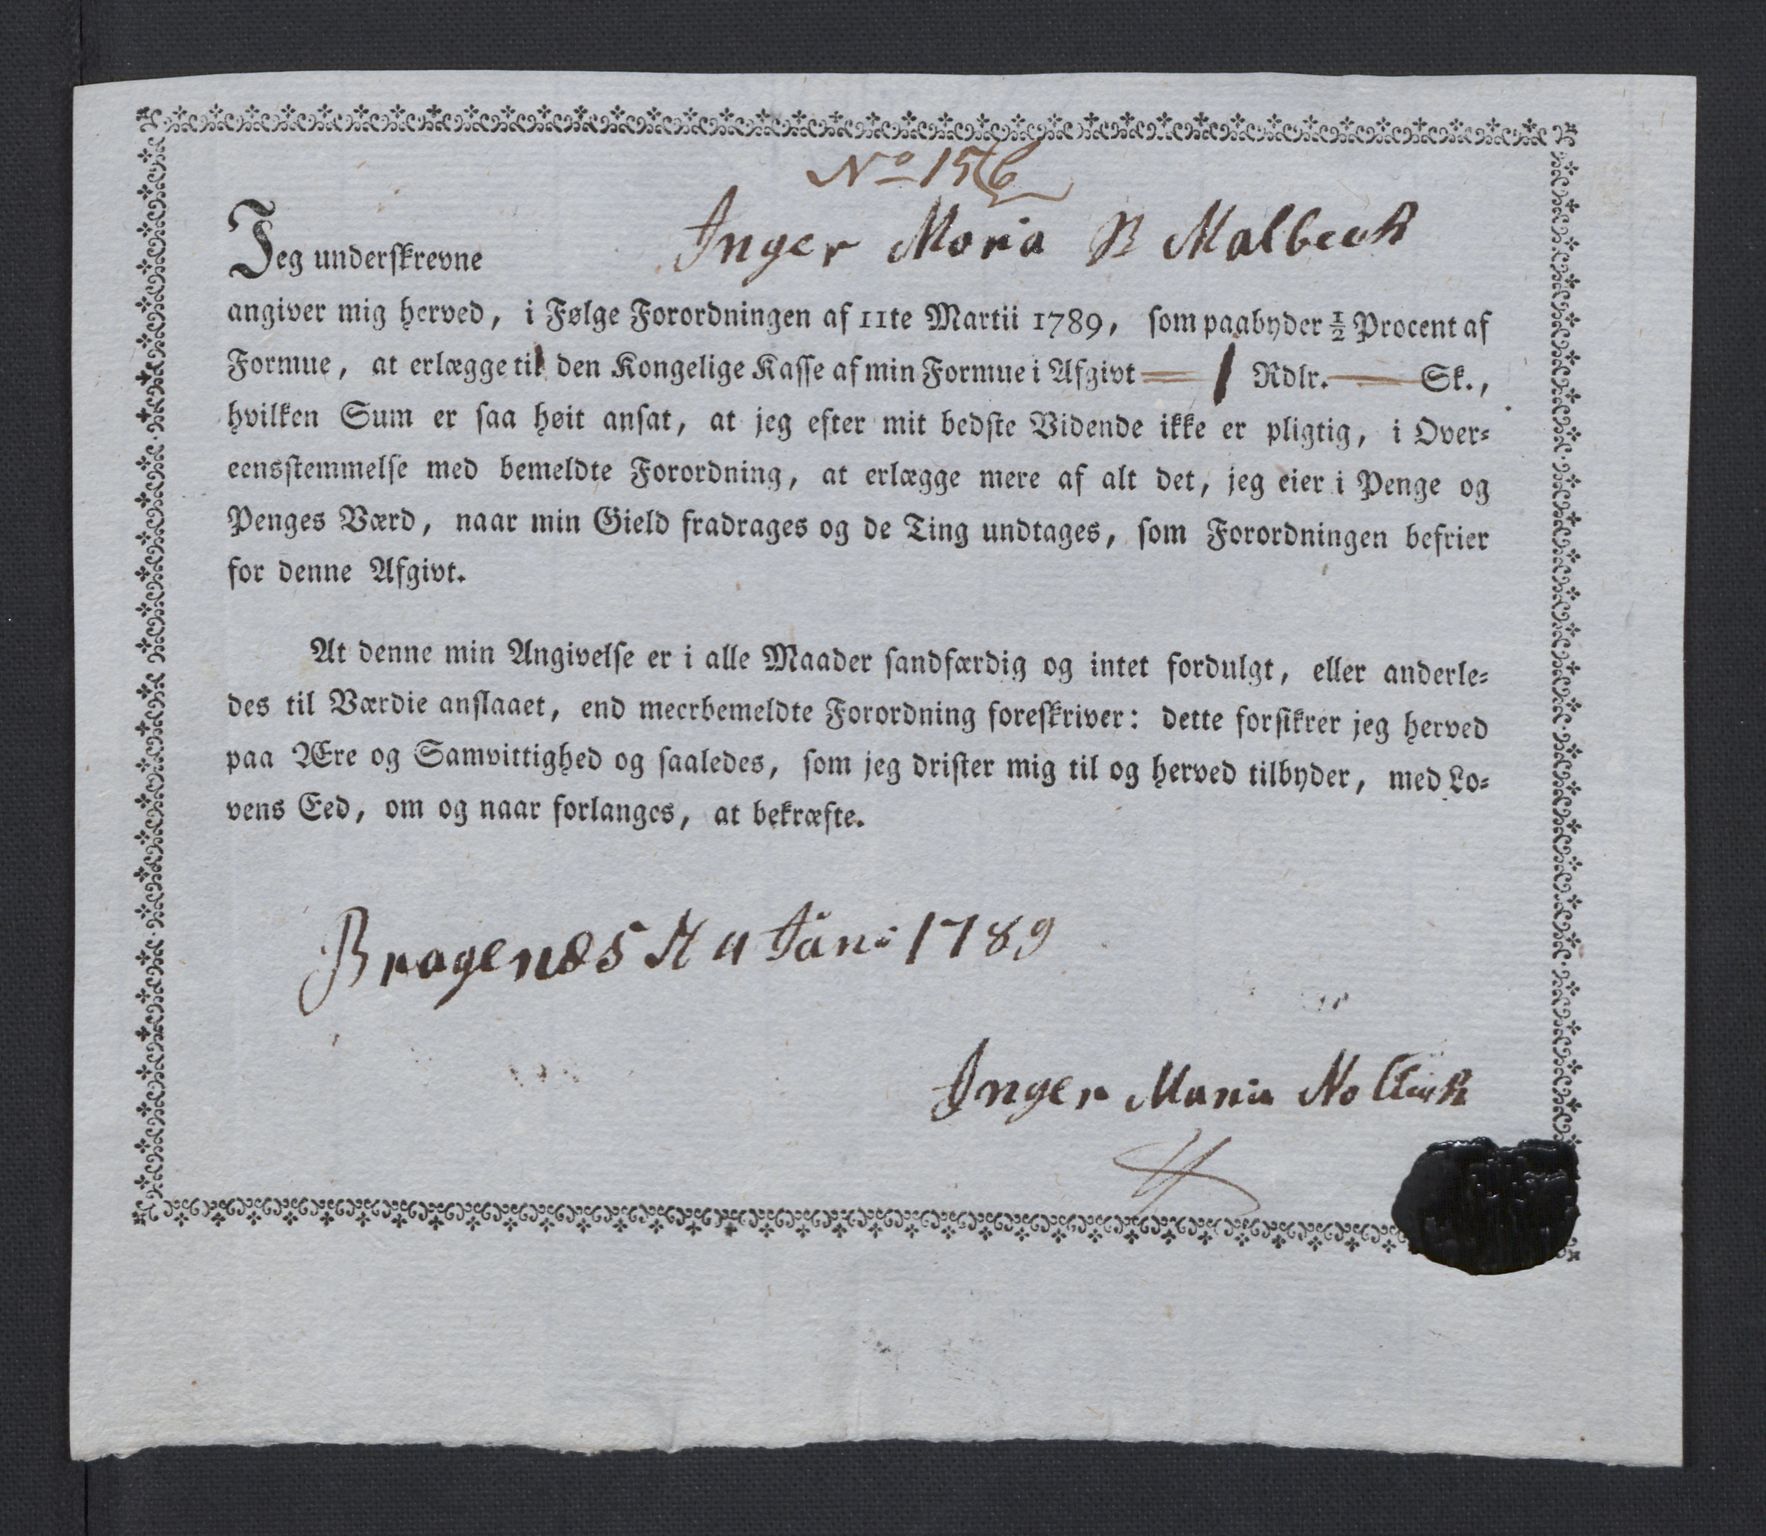 No 156
Jeg underskrevne Inger Maria Malbeck
angiver mig herved, i Følge Forordningen af 11te Martii 1789, som paabyder ½ Procent af
Formue, at erlægge til den Kongelige Kasse af min Formue i Afgivt — 1 Rdlr. — Sk.,
hvilken Sum er saa høit ansat, at jeg efter mit bedste Vidende ikke er pligtig, i Over-
eensstemmelse med bemeldte Forordning, at erlægge mere af alt det, jeg eier i Penge og
Penges Værd, naar min Gield fradrages og de Ting undtages, som Forordningen befrier
for denne Afgivt.
At denne min Angivelse er i alle Maader sandfærdig og intet fordulgt, eller anderle-
des til Værdie anslaaet, end meerbemeldte Forordning foreskriver: dette forsikrer jeg herved
paa Ære og Samvittighed og saaledes, som jeg drister mig til og herved tilbyder, med Lo-
vens Eed, om og naar forlanges, at bekræfte.
Bragenæs 1789
Inger Maria